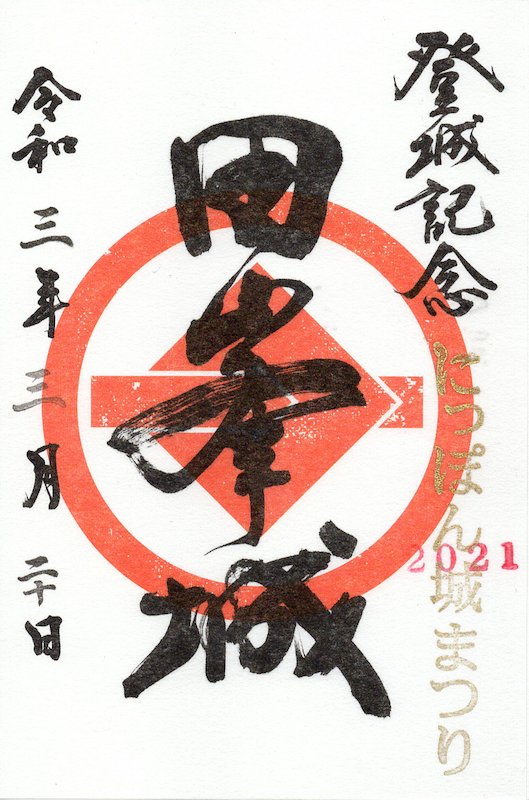 登城記念
にっぽん城まつり
2021
田峯城
令和三年三月二十日